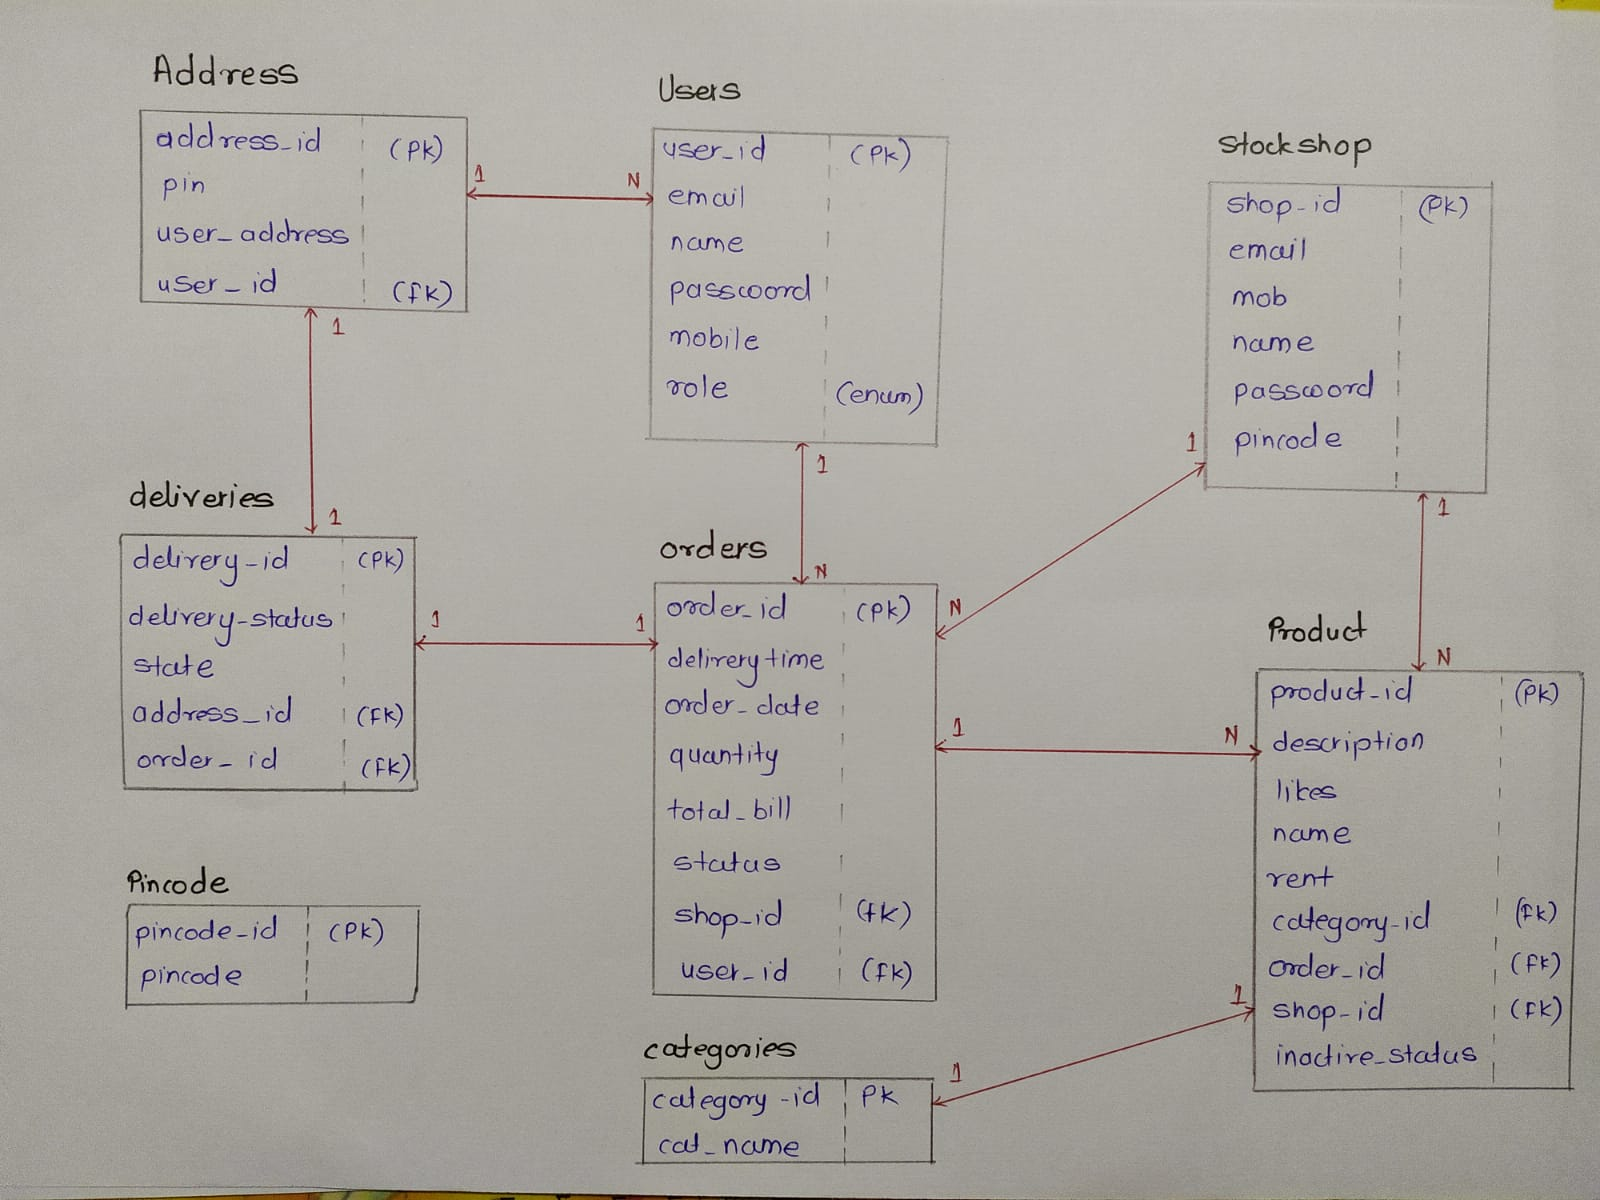 Address
address_id (PK)
pin
user_address
user_id (fK)
1 N
Users
user_id (PK)
email
name
password
mobile
role (enum)
Stockshop
shop-id (PK)
email
mob
name
password
pincode
1
1
1
N
1
1
N
deliveries
delivery-id (PK)
delivery-status
state
address_id (fK)
order_id (fK)
1 1
orders
order_id (PK)
delivery time
order_date
quantity
total_bill
status
shop-id (fK)
user_id (fK)
N
1 N
Product
product-id (PK)
description
likes
name
rent
category-id (fK)
order_id (fK)
shop-id (fK)
inactive_status
Pincode
pincode-id (PK)
pincode
categories
category-id PK
cat_name
1
1